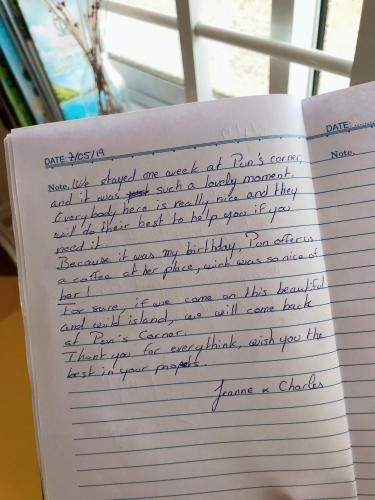 DATE: 7/05/19
DATE:
Note. We stayed one week at Pen's corner,
and it was such a lovely moment.
Everybody here is really nice and they
will do their best to help you if you
need it.
Because it was my birthday, Pen offer us
a coffee at her place, wich was so nice of
her!
For sure, if we come on this beautiful
and wild island, we will come back
at Pen's Corner.
Thank you for everythink, wish you the
best in your
Jeanne & Charles
Note.